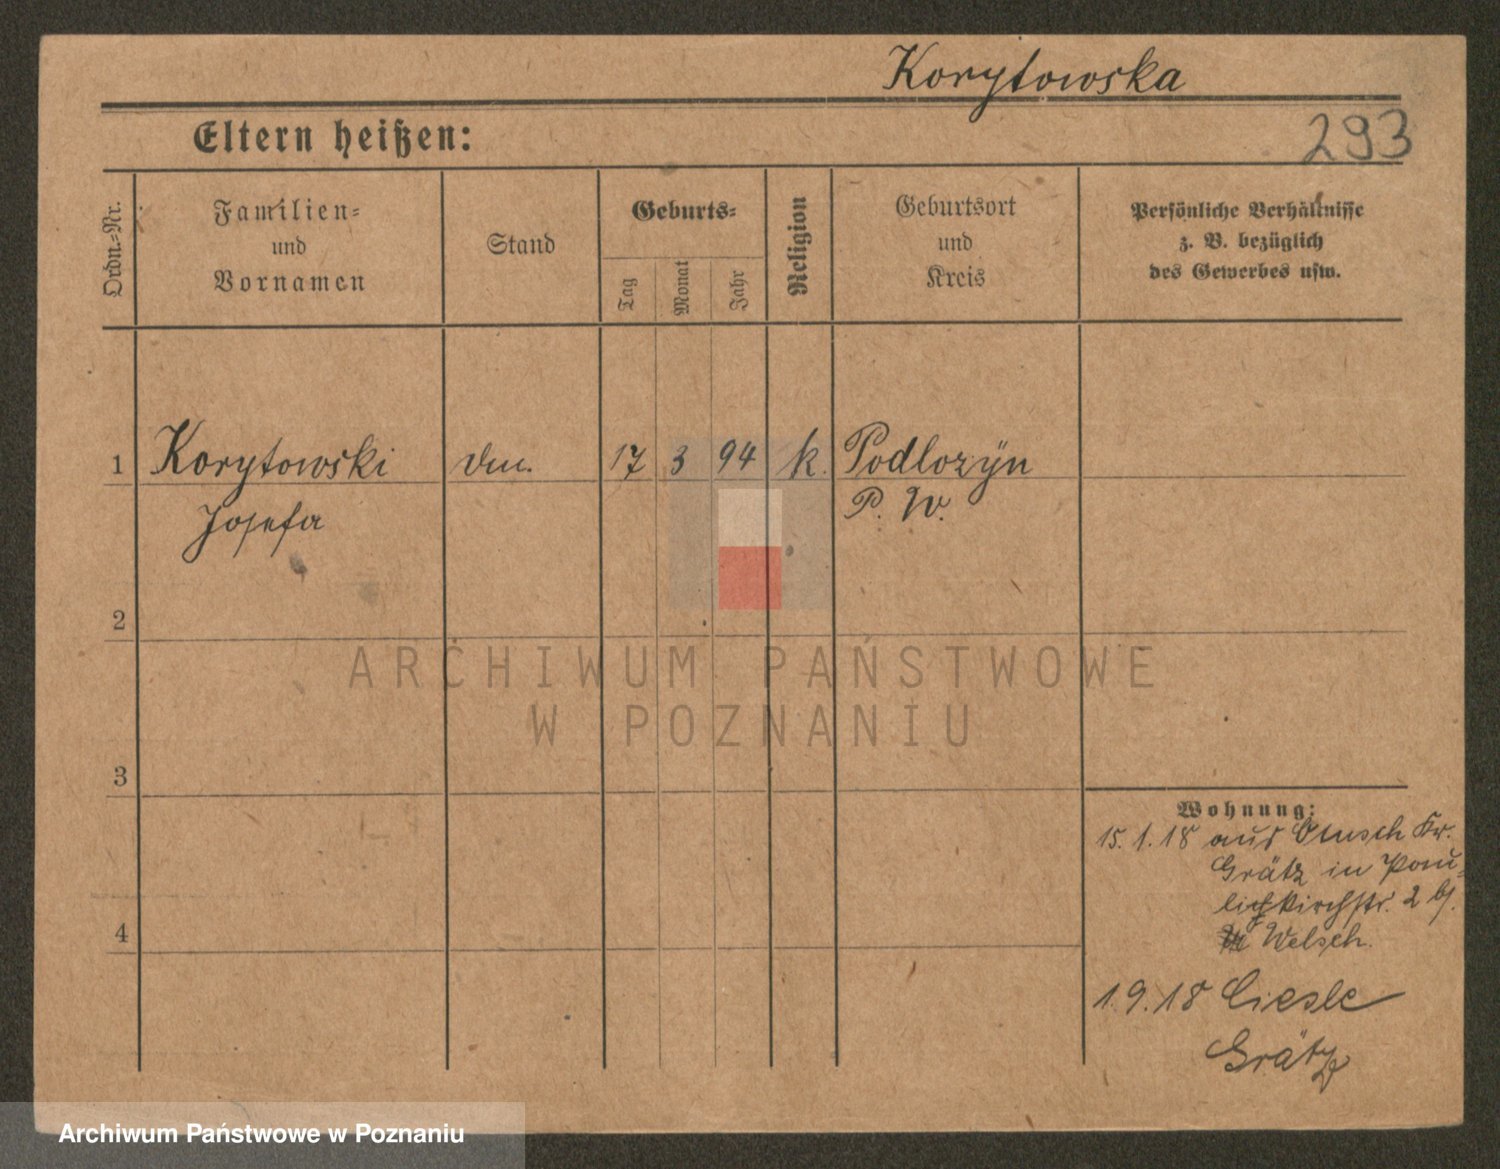 Korytowska
Eltern heißen:
293
Ordn.=Nr.
Familien=
und
Vornamen
Stand
Geburts=
Tag
Monat
Jahr
Religion
Geburtsort
und
Kreis
Persönliche Verhältnisse
z. B. bezüglich
des Gewerbes usw.
1 Korytowski 17 3 94 k. Podlozyn
Josefa P. W.
2
3
4
Wohnung:
15.1.18 aus Otusch Kr.
Grätz in
2 bj.
Welsch.
1.9.18 Ciesle
Grätz
ARCHIWUM PAŃSTWOWE
W POZNANIU
Archiwum Państwowe w Poznaniu